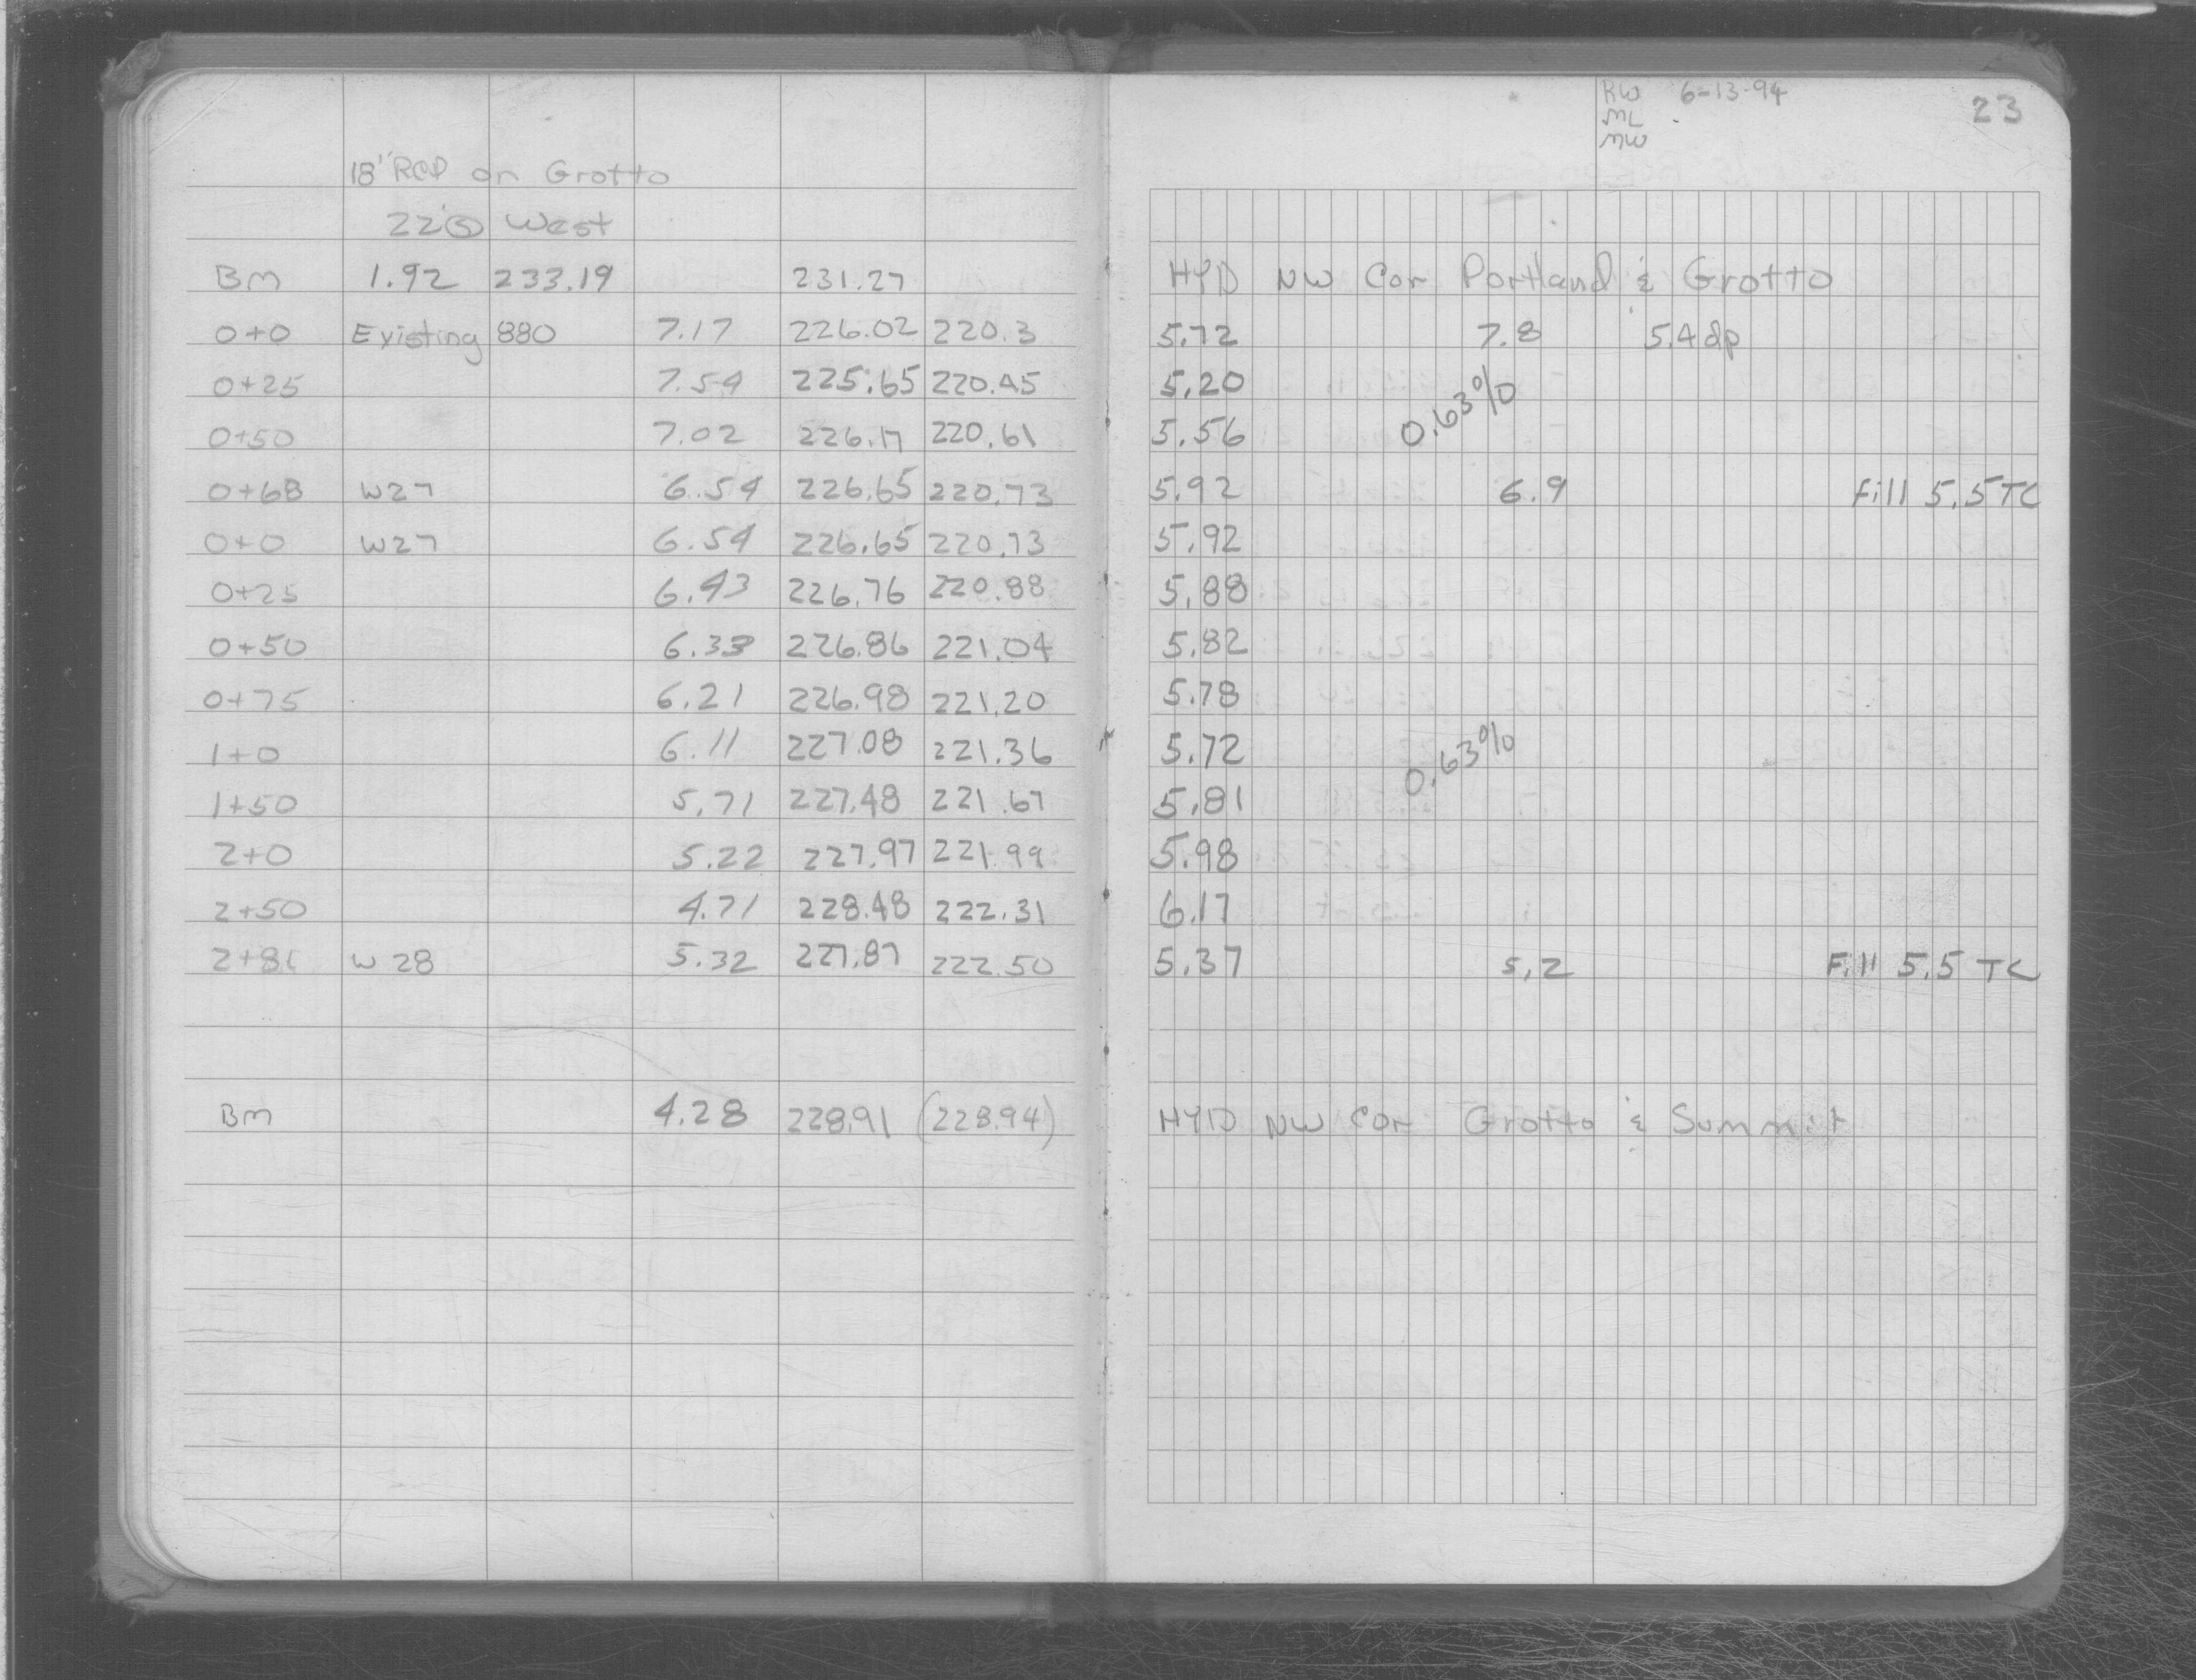 RW 6-13-94 23
ML
MW
18" RCP on Grotto
22' West
BM 1.92 233.19 231.27 HYD NW Cor Portland & Grotto
0+0 Existing 880 7.17 226.02 220.3 5.72 7.8 5.4 dp
0+25 7.54 225.65 220.45 5.20
0+50 7.02 226.17 220.61 5.56 0.63%
0+68 W27 6.54 226.65 220.73 5.92 6.9 Fill 5.5 TC
0+0 W27 6.54 226.65 220.73 5.92
0+25 6.43 226.76 220.88 5.88
0+50 6.33 226.86 221.04 5.82
0+75 6.21 226.98 221.20 5.78
1+0 6.11 227.08 221.36 5.72 0.63%
1+50 5.71 227.48 221.67 5.81
2+0 5.22 227.97 221.99 5.98
2+50 4.71 228.48 222.31 6.17
2+81 W28 5.32 227.87 222.50 5.37 5.2 Fill 5.5 TC
BM 4.28 228.91 (228.94) HYD NW Cor Grotto & Summit